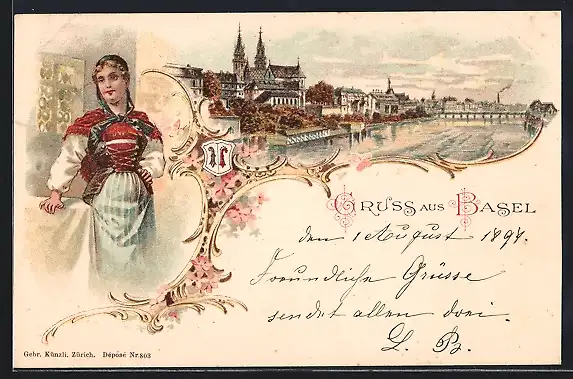 GRUSS AUS BASEL
den 1 August 1897.
Freundliche Grüsse
sendet allen drei.
L. B.
Gebr. Künzli, Zürich. Déposé Nr. 803